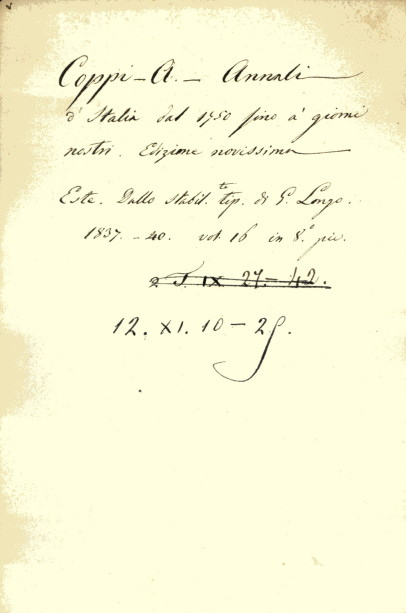 Coppi - A. - Annali
d'Italia dal 1750 fino a' giorni
nostri. Edizione novissima
Este. Dallo stabil.to tip. di G. Longo.
1837. - 40. vol. 16 in 8.° pic.
2. T. IX 27. - 42.
12. XI. 10 - 25.